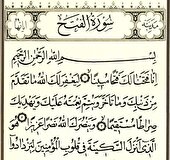 سُورَةُ الْفَتْحِ
بِسْمِ اللَّهِ الرَّحْمَٰنِ الرَّحِيمِ
إِنَّا فَتَحْنَا لَكَ فَتْحًا مُّبِينًا ۝ لِّيَغْفِرَ لَكَ اللَّهُ مَا تَقَدَّمَ
مِن ذَنبِكَ وَمَا تَأَخَّرَ وَيُتِمَّ نِعْمَتَهُ عَلَيْكَ وَيَهْدِيَكَ
صِرَاطًا مُّسْتَقِيمًا ۝ وَيَنصُرَكَ اللَّهُ نَصْرًا عَزِيزًا ۝ هُوَ
الَّذِي أَنزَلَ السَّكِينَةَ فِي قُلُوبِ الْمُؤْمِنِينَ لِيَزْدَادُوا